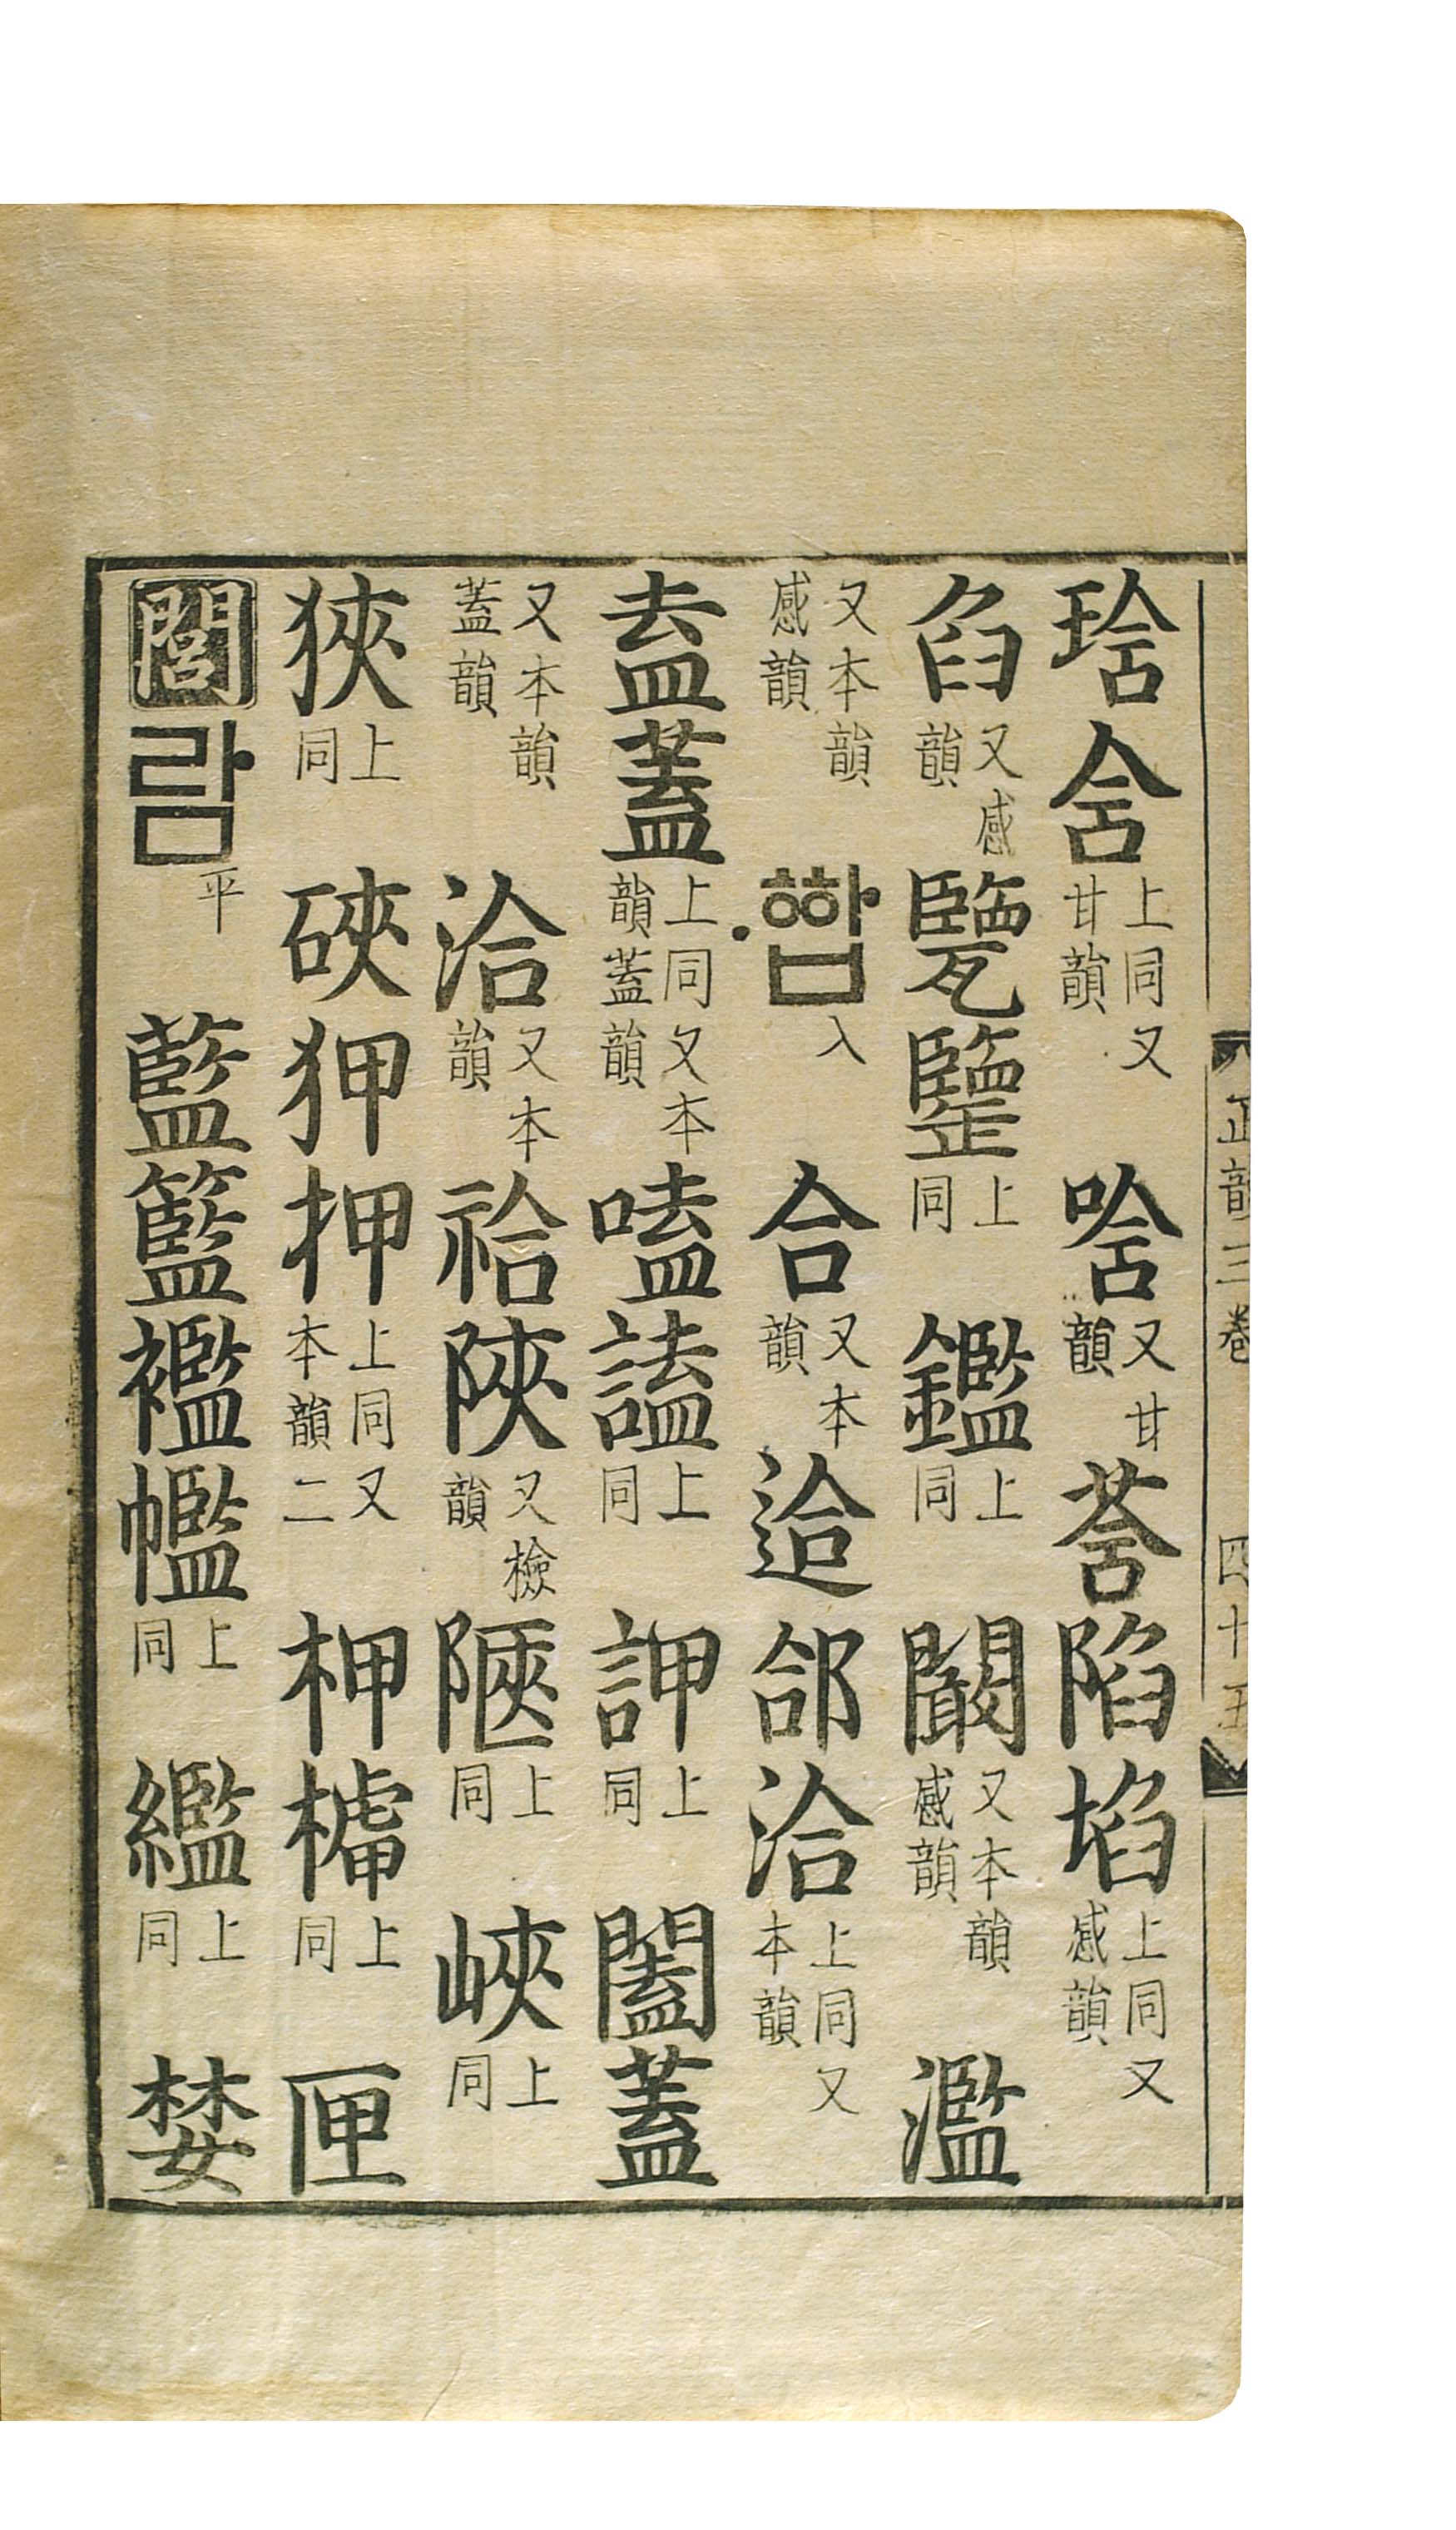 琀 㕎 上同又甘韻 唅 又甘韻 莟 陷 埳 上同又感韻
臽 又感韻 上同 鑑 上同 闞 又本韻感韻 濫
又本韻感韻 〮ᅘᅡᆸ 入 合 又本韻 迨 郃 洽 上同又本韻
盍 蓋 上同又本韻蓋韻 嗑 譫 上同 訷 上同 闔 蓋
又本韻蓋韻 洽 又本韻 祫 陜 又檢韻 陿 上同 峽 上同
狹 上同 硤 狎 押 上同又本韻二 柙 㯓 上同 匣
閻 람 平 藍 籃 襤 㡮 上同 繿 上同 婪
正韻三卷 四十五